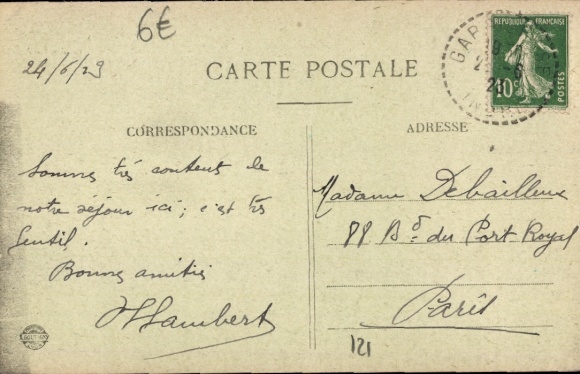 6€
24/6/23
CARTE POSTALE
REPUBLIQUE FRANÇAISE
10c
POSTES
CORRESPONDANCE
ADRESSE
Sommes très content de
notre séjour ici; c'est très
Gentil.
Bonnes amitiés
Lambert
Madame Debailleux
88 Bd du Port Royal
Paris
121